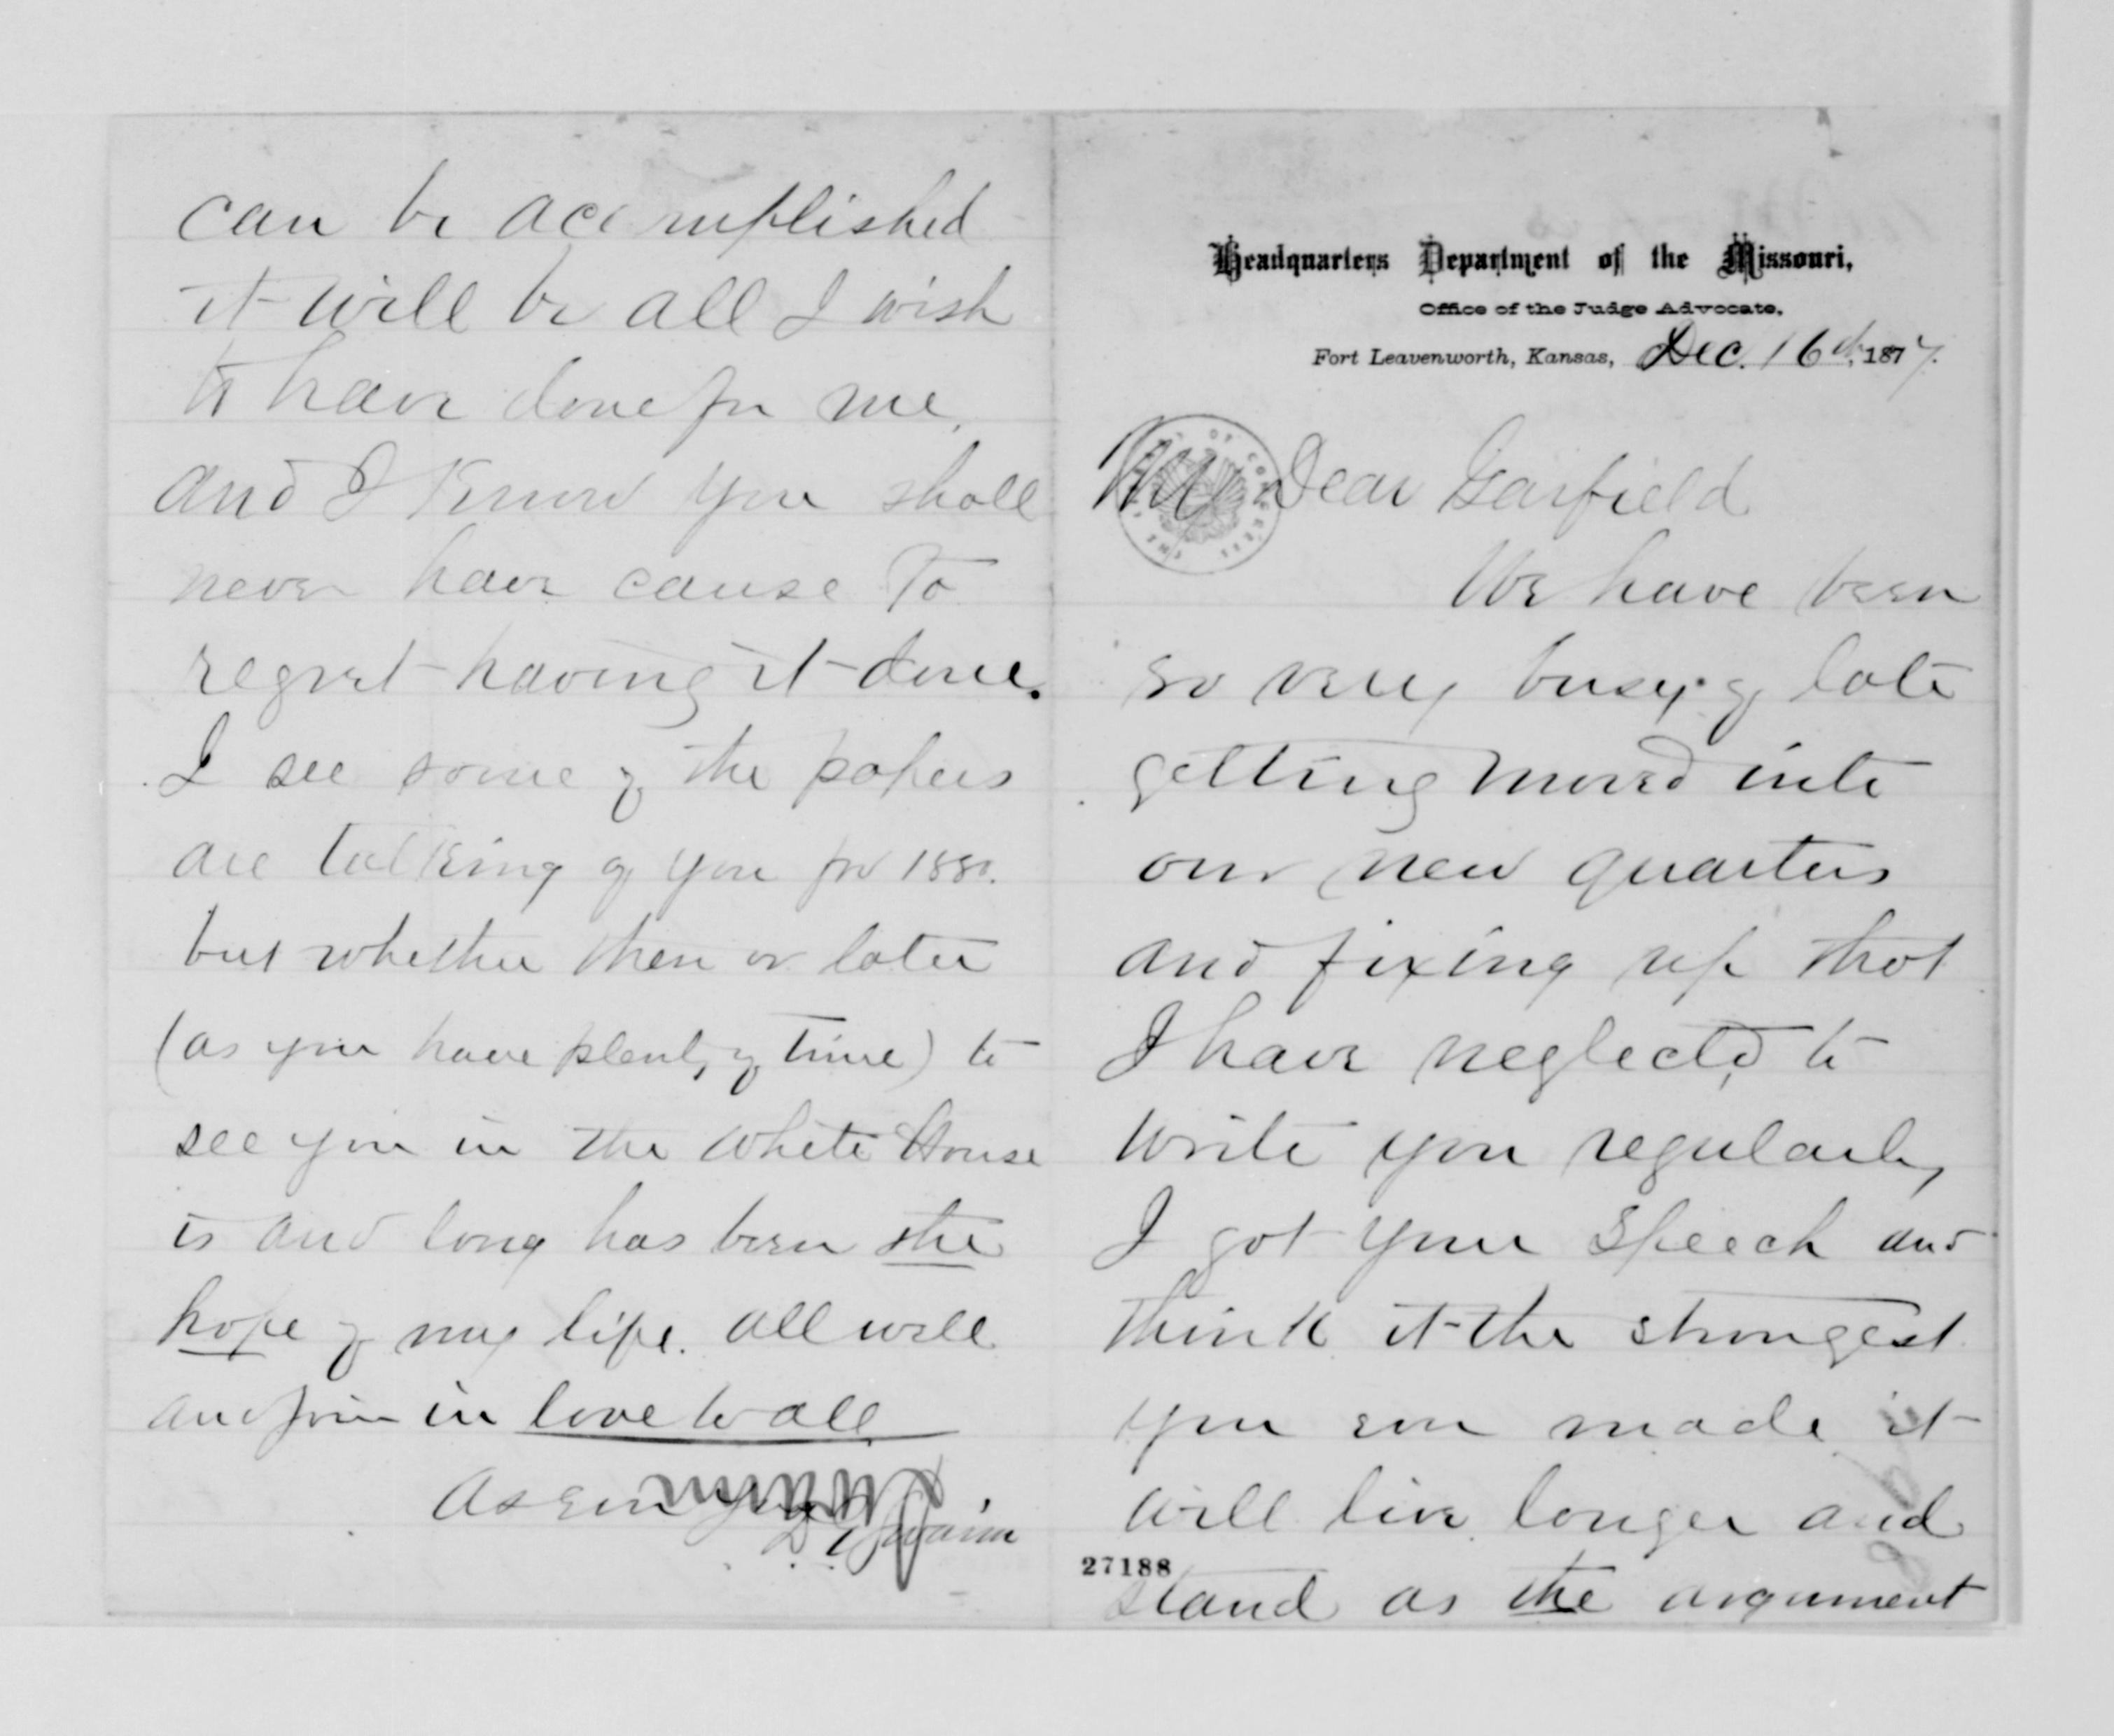 Headquarters Department of the Missouri,
Office of the Judge Advocate,
Fort Leavenworth, Kansas, Dec. 16th, 1877.
My Dear Garfield
We have been
so very busy of late
getting moved into
our new quarters
and fixing up that
I have neglected to
write you regularly
I got your speech and
think it the strongest
you ever made it
will live longer and
stand as the argument
27188
can be accomplished
it will be all I wish
to have done for me,
and I know you shall
never have cause to
regret having it done.
I see some of the papers
are talking of you for 1880.
but whether then or later
(as you have plenty of time) to
see you in the White House
is and long has been the
hope of my life. All well
and join in love to all
As Ever Yours
D. G. Swaim